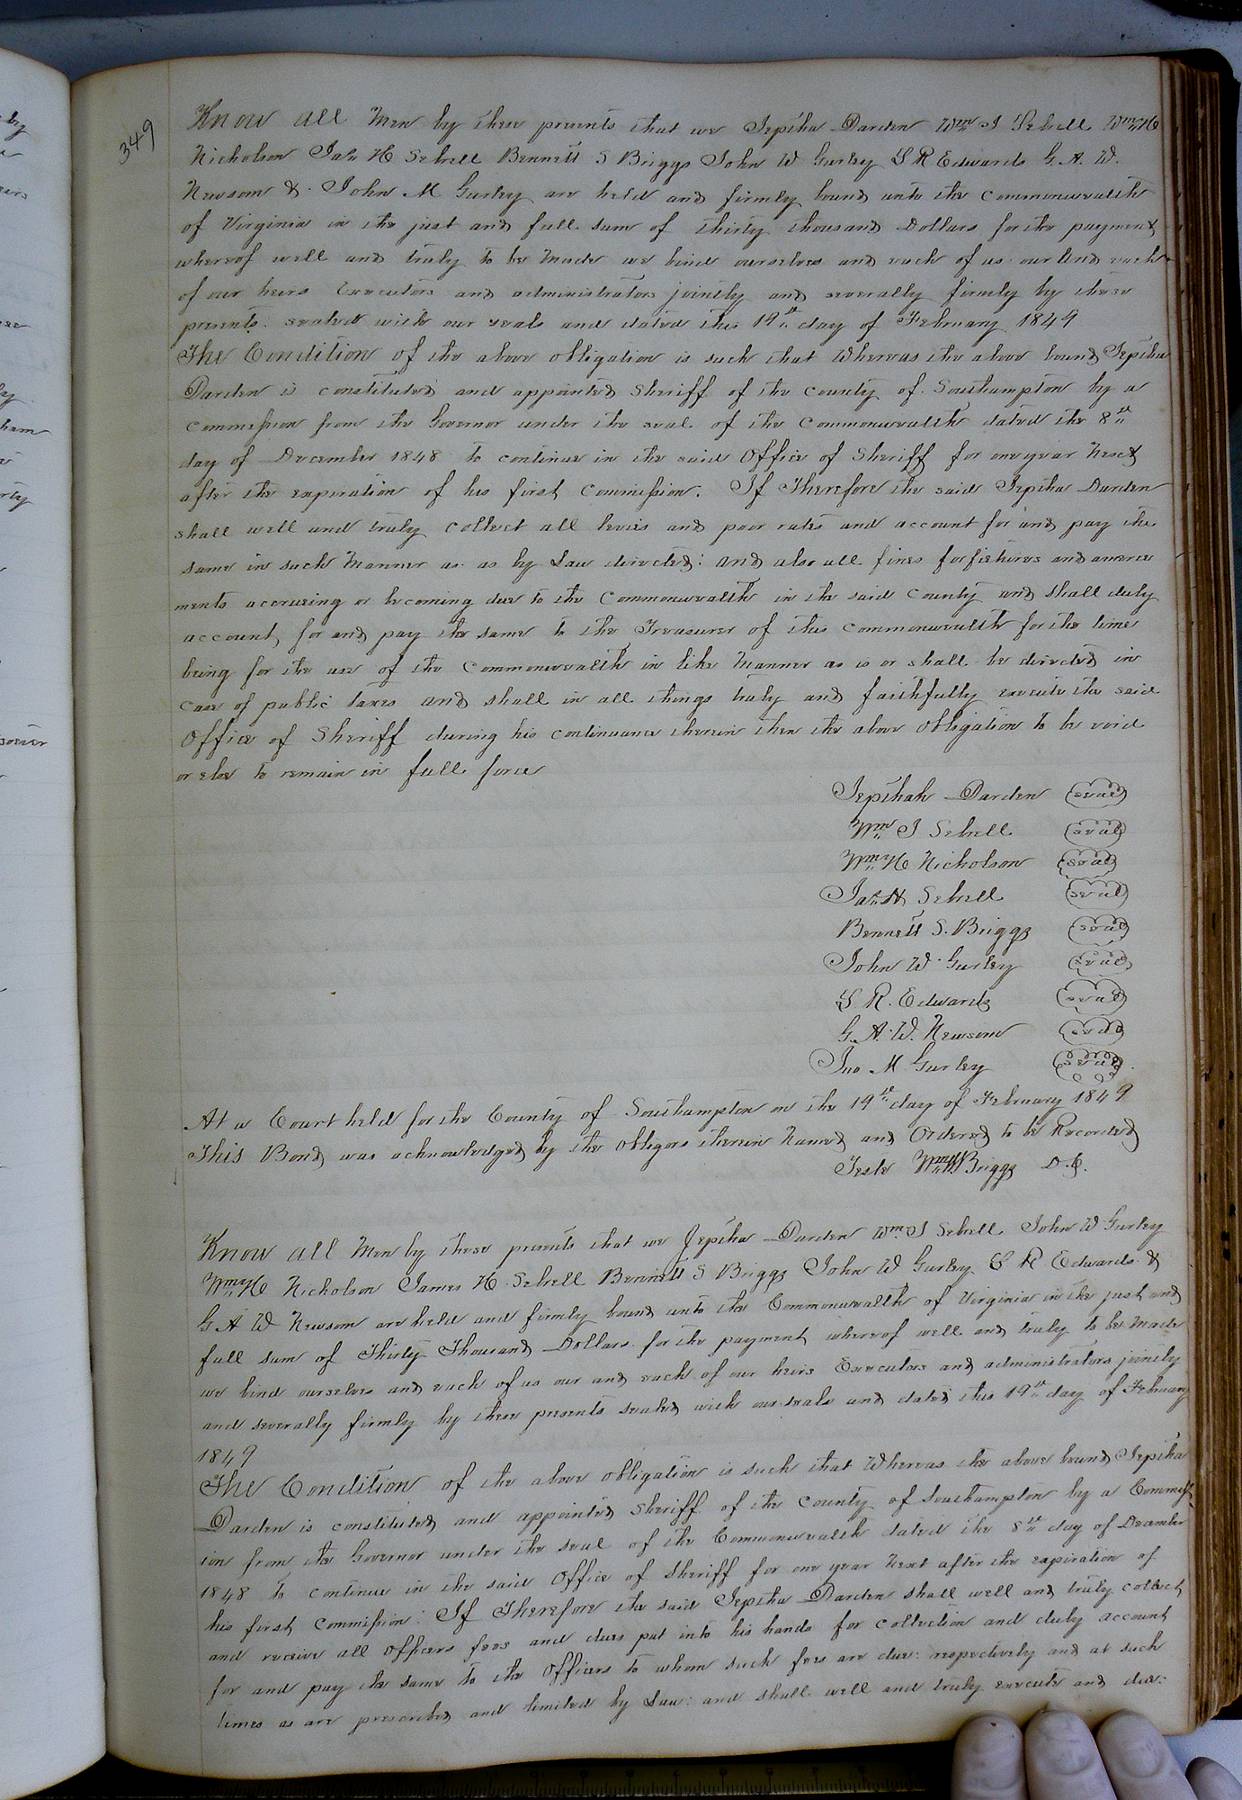 349
Know all Men by these presents that we Jeptha Darden Wm J Sebrell Wm H
Nicholson Jas H Sebrell Bennett S Briggs John W Gurley S R Edwards G. A. W.
Newsom & John M Gurley are held and firmly bound unto the Commonwealth
of Virginia in the just and full sum of thirty thousand Dollars for the payment
whereof well and truly to be Made we bind ourselves and each of us our And each
of our heirs Executors and administrators jointly and severally firmly by these
presents. sealed with our seals and dated this 19th day of February 1849
The Condition of the above obligation is such that Whereas the above bound Jeptha
Darden is constituted and appointed Sheriff of the County of Southampton by a
commission from the Governor under the seal of the Commonwealth dated the 8th
day of December 1848 to continue in the said Office of Sheriff for one year Next
after the expiration of his first Commission. If Therefore the said Jeptha Darden
shall well and truly collect all levies and poor rates and account for and pay the
same in such Manner as as by Law directed: and also all fines forfeitures and amerce
ments accrueing or becoming due to the Commonwealth in the said County and shall duly
account, for and pay the same to the Treasurer of this Commonwealth for the time
being for the use of the Commonwealth in like Manner as is or shall be directed in
case of public taxes and shall in all things truly and faithfully execute the said
Office of Sheriff during his continuance therein then the above Obligation to be void
or else to remain in full force
Jepthah Darden seal
Wm J Sebrell seal
Wm H Nicholson seal
Jas H Sebrell seal
Bennett S. Briggs seal
John W. Gurley seal
S R. Edwards seal
G. A. W. Newsom seal
Jno M Gurley seal
At a Court held for the County of Southampton on the 19th day of February 1849
This Bond was acknowledged by the obligors therein Named and Ordered to be Recorded
Teste Wm H Briggs D. C.
Know all Men by these presents that we Jeptha Darden Wm J Sebrell John W Gurley
Wm H Nicholson James H. Sebrell Bennett S Briggs John W Gurley. E R Edwards &
G A W Newsom are held and firmly bound unto the Commonwealth of Virginia in the just and
full sum of Thirty Thousand Dollars for the payment whereof well and truly to be Made
we bind ourselves and each of us our and each of our heirs Executors and administrators jointly
and severally firmly by these presents sealed with our seals and dated this 19th day of February
1849
The Condition of the above obligation is such that Whereas the above bound Jeptha
Darden is constituted and appointed Sheriff of the County of Southampton by a Commiss
ion from the Governor under the seal of the Commonwealth dated the 8th day of December
1848 to continue in the said Office of Sheriff for one year Next after the expiration of
his first Commission: If Therefore the said Jeptha Darden shall well and truly collect
and receive all Officers fees and dues put into his hands for collection and duly account
for and pay the same to the Officers to whom such fees are due: respectively and at such
times as are prescribed and limited by Law: and shall well and truly execute and due